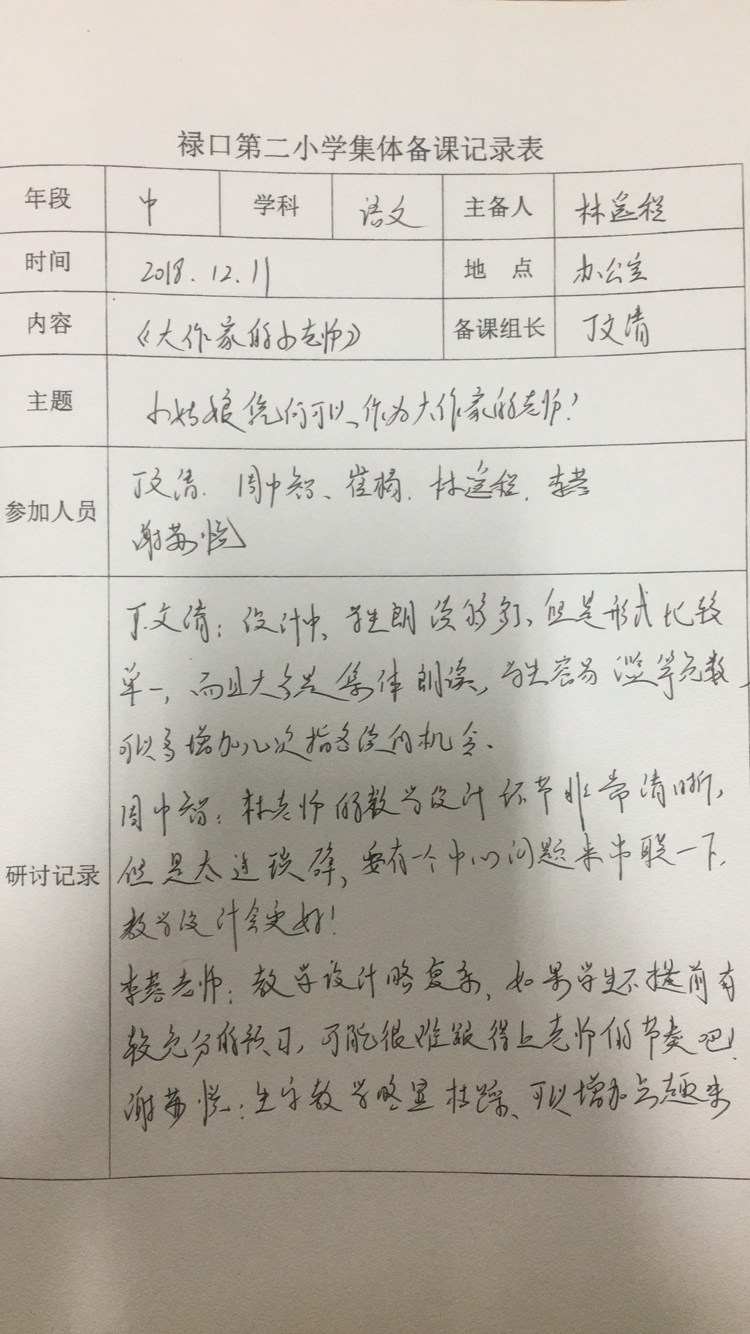 禄口第二小学集体备课记录表
年段 中 学科 语文 主备人 林遥程
时间 2018.12.11 地点 办公室
内容 《大作家的小老师》 备课组长 丁文清
主题 小姑娘凭何可以作为大作家的老师？
参加人员 丁文清、周中智、崔杨、林遥程、李蓉
谢苏悦
研讨记录
丁文清：设计中，学生朗读够多，但是形式比较
单一，而且大多是集体朗读，学生容易滥竽充数，
可以多增加几次指名读的机会。
周中智：林老师的教学设计环节非常清晰，
但是太过琐碎，要有一个中心问题来串联一下，
教学设计会更好！
李蓉老师：教学设计略复杂，如果学生不提前有
较充分的预习，可能很难跟得上老师的节奏吧！
谢苏悦：生字教学略显枯燥、可以增加点趣味